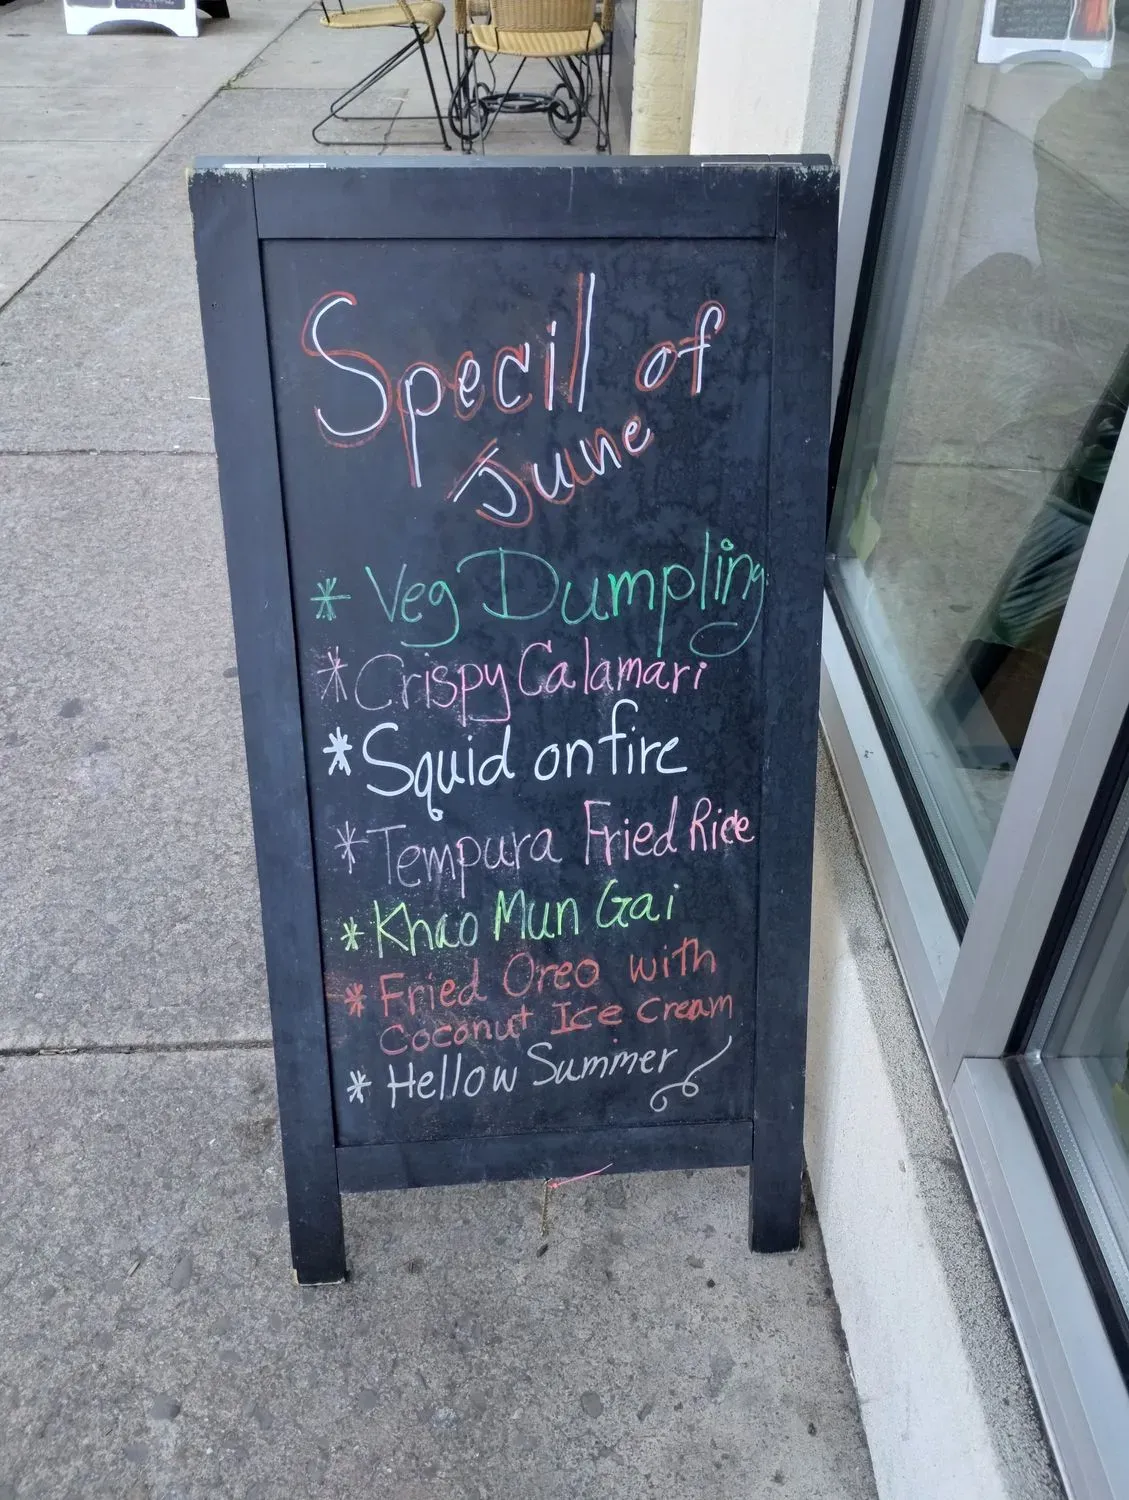 Specil of
June
* Veg Dumpling
* Crispy Calamari
* Squid on fire
* Tempura Fried Rice
* Khao Mun Gai
* Fried Oreo with
Coconut Ice Cream
* Hellow Summer